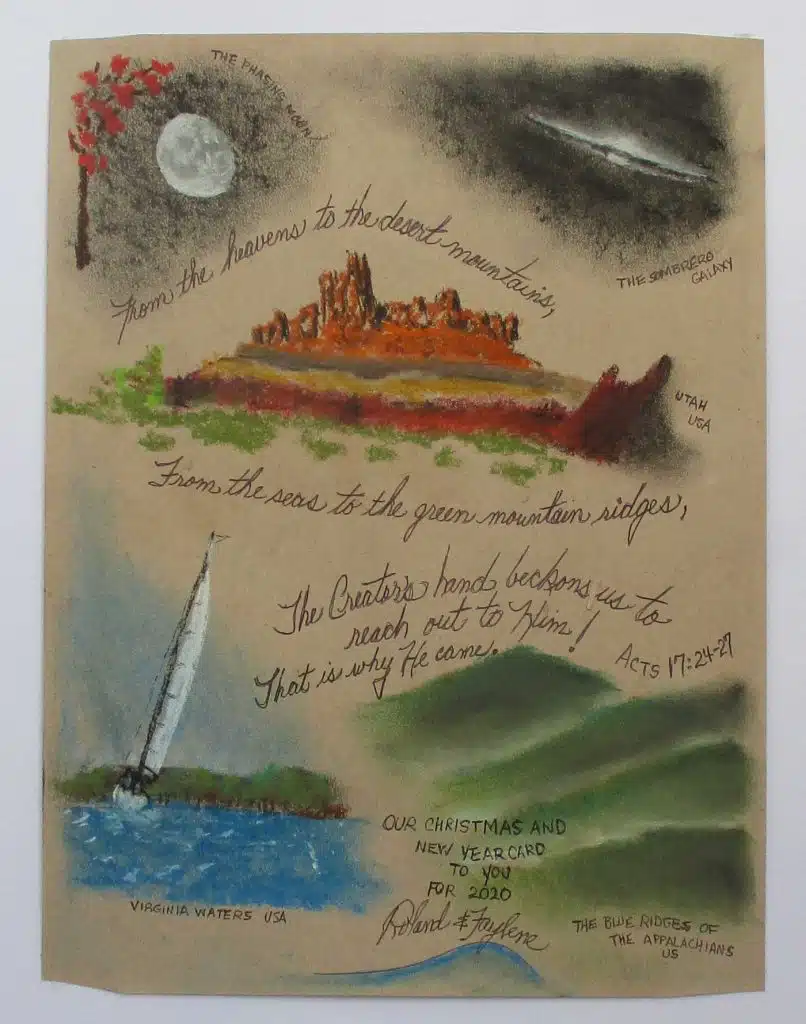 THE PHASING MOON
THE SOMBRERO
GALAXY
From the heavens to the desert mountains,
UTAH
USA
From the seas to the green mountain ridges,
The Creator's hand beckons us to
reach out to Him!
That is why He came.
ACTS 17:24-27
OUR CHRISTMAS AND
NEW YEAR CARD
TO YOU
FOR 2020
Roland & Faylene
VIRGINIA WATERS USA
THE BLUE RIDGES OF
THE APPALACHIANS
US